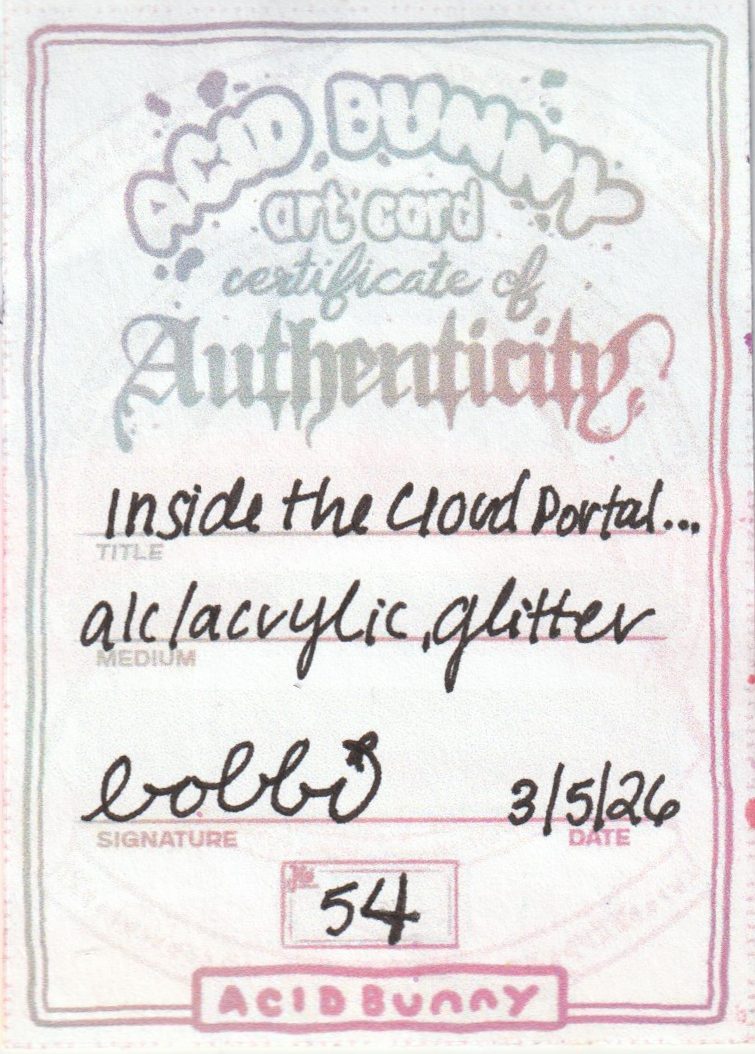 ACID BUNNY
art card
certificate of
Authenticity
Inside the Cloud Portal...
TITLE
a/c/acrylic, glitter
MEDIUM
bobbi 3/5/26
SIGNATURE DATE
No
54
ACID BUNNY